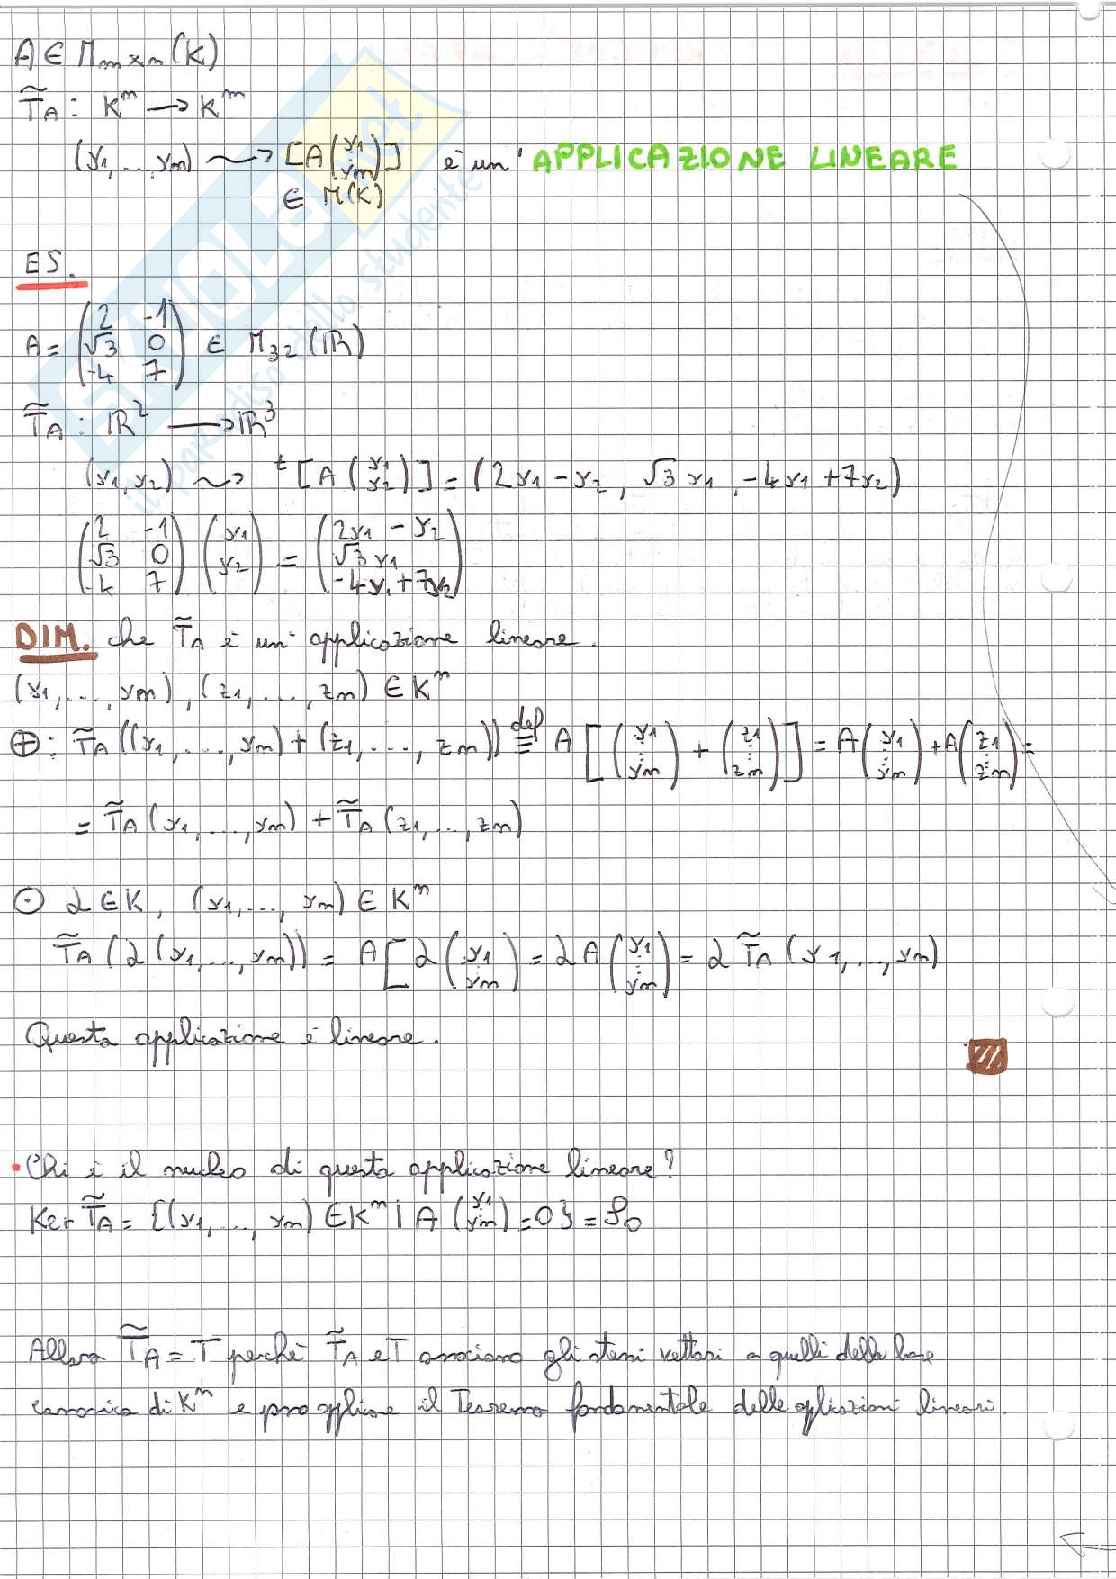 A ∈ M m×n (K)
T̃A : K^n → K^m
(y1, ..., yn) ⤳ [A (y1 ⋮ yn)] è un' APPLICAZIONE LINEARE
∈ M(K)
ES.
A = (2 -1 / √3 0 / -4 7) ∈ M32 (ℝ)
T̃A : ℝ² → ℝ³
(y1, y2) ⤳ t[A (y1 / y2)] = (2y1 - y2, √3 y1, -4y1 + 7y2)
(2 -1 / √3 0 / -4 7) (y1 / y2) = (2y1 - y2 / √3 y1 / -4y1 + 7y2)
DIM. che T̃A è un' applicazione lineare.
(y1, ..., yn), (z1, ..., zn) ∈ K^n
⊕: T̃A((y1, ..., yn) + (z1, ..., zn)) def≡ A [(y1 ⋮ yn) + (z1 ⋮ zn)] = A (y1 ⋮ yn) + A (z1 ⋮ zn) =
= T̃A (y1, ..., yn) + T̃A (z1, ..., zn)
⊙ α ∈ K, (y1, ..., yn) ∈ K^n
T̃A (α (y1, ..., yn)) = A [α (y1 ⋮ yn) = α A (y1 ⋮ yn) = α T̃A (y1, ..., yn)
Questa applicazione è lineare.
• Chi è il nucleo di questa applicazione lineare?
Ker T̃A = {(y1, ..., yn) ∈ K^n | A (y1 ⋮ yn) = 0} = S0
Allora T̃A = T perchè T̃A e T associano gli stessi vettori a quelli della base
canonica di K^n e poi applico il Teorema fondamentale delle applicazioni lineari.